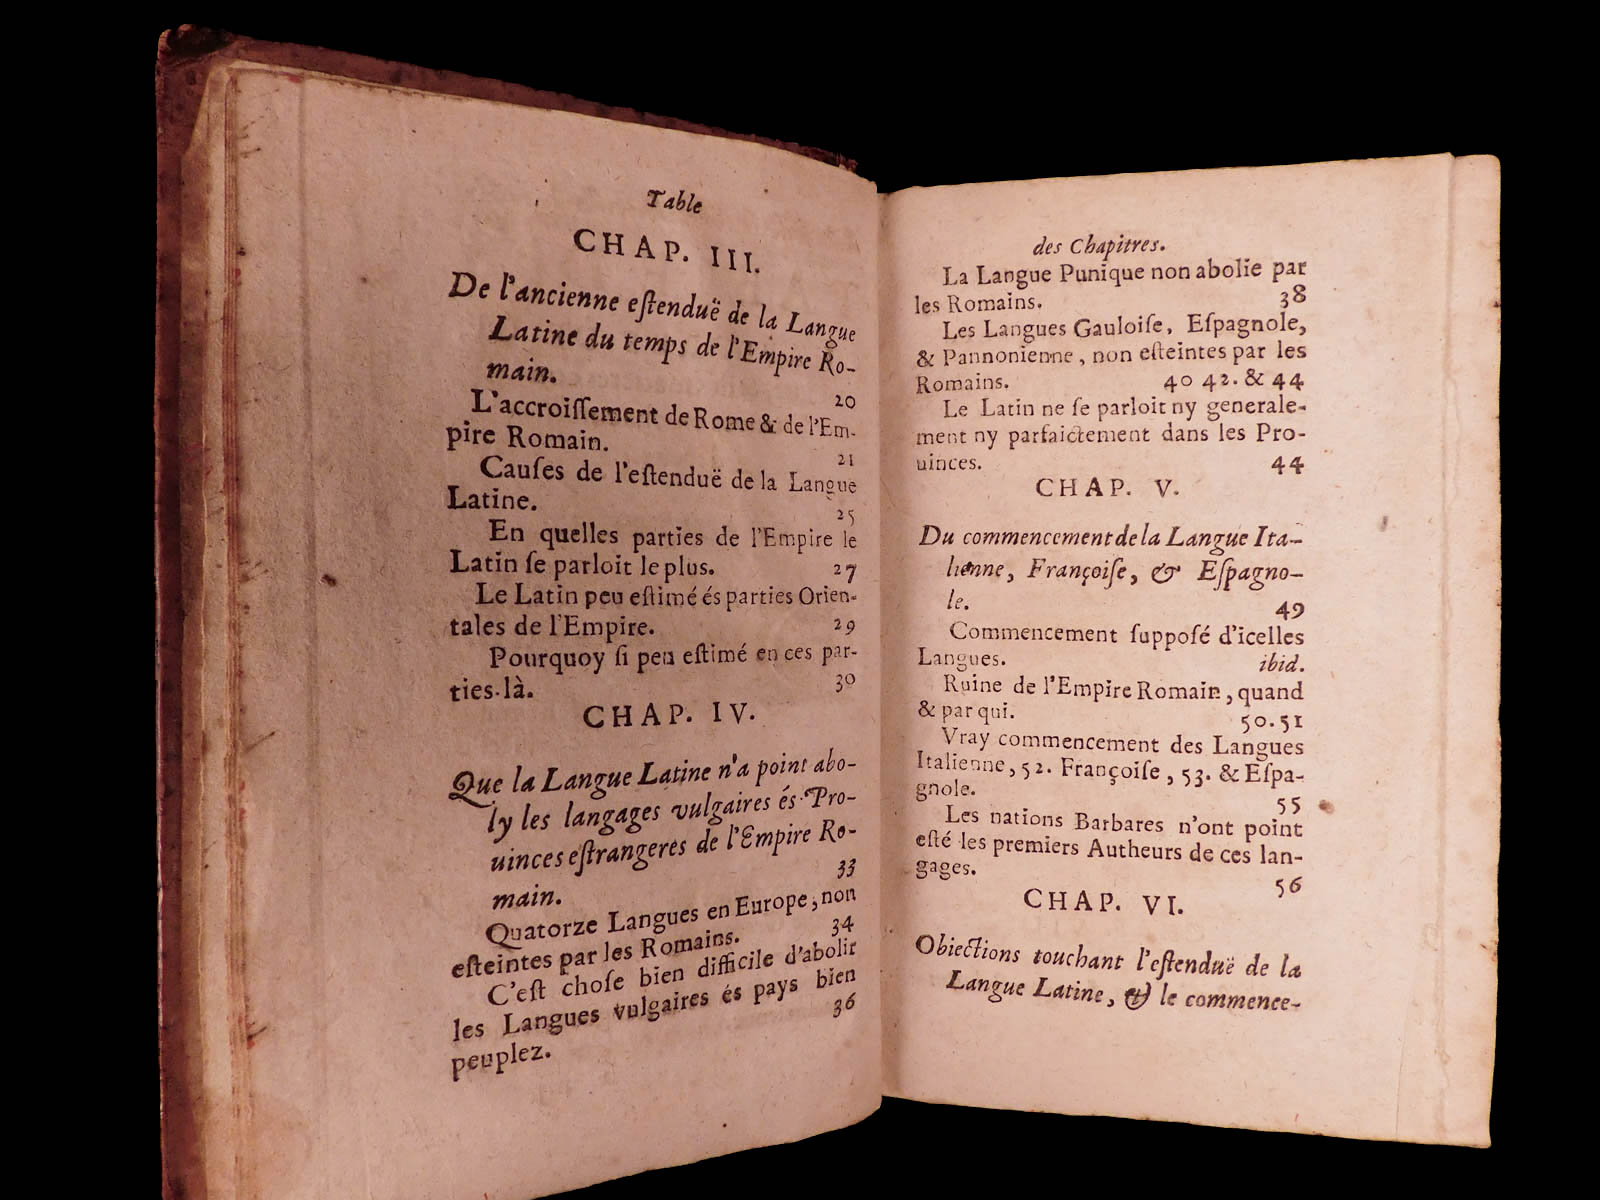 Table
CHAP. III.
De l'ancienne eſtenduë de la Langue
Latine du temps de l'Empire Ro-
main. 20
L'accroiſſement de Rome & de l'Em-
pire Romain. 21
Cauſes de l'eſtenduë de la Langue
Latine. 25
En quelles parties de l'Empire le
Latin ſe parloit le plus. 27
Le Latin peu eſtimé és parties Orien-
tales de l'Empire. 29
Pourquoy ſi peu eſtimé en ces par-
ties-là. 30
CHAP. IV.
Que la Langue Latine n'a point abo-
ly les langages vulgaires és Pro-
uinces eſtrangeres de l'Empire Ro-
main. 33
Quatorze Langues en Europe, non
eſteintes par les Romains. 34
C'eſt choſe bien difficile d'abolir
les Langues vulgaires és pays bien
peuplez. 36
des Chapitres.
La Langue Punique non abolie par
les Romains. 38
Les Langues Gauloiſe, Eſpagnole,
& Pannonienne, non eſteintes par les
Romains. 40 42. & 44
Le Latin ne ſe parloit ny generale-
ment ny parfaictement dans les Pro-
uinces. 44
CHAP. V.
Du commencement de la Langue Ita-
lienne, Françoiſe, & Eſpagno-
le. 49
Commencement ſuppoſé d'icelles
Langues. ibid.
Ruine de l'Empire Romain, quand
& par qui. 50.51
Vray commencement des Langues
Italienne, 52. Françoiſe, 53. & Eſpa-
gnole. 55
Les nations Barbares n'ont point
eſté les premiers Autheurs de ces lan-
gages. 56
CHAP. VI.
Obiections touchant l'eſtenduë de la
Langue Latine, & le commence-